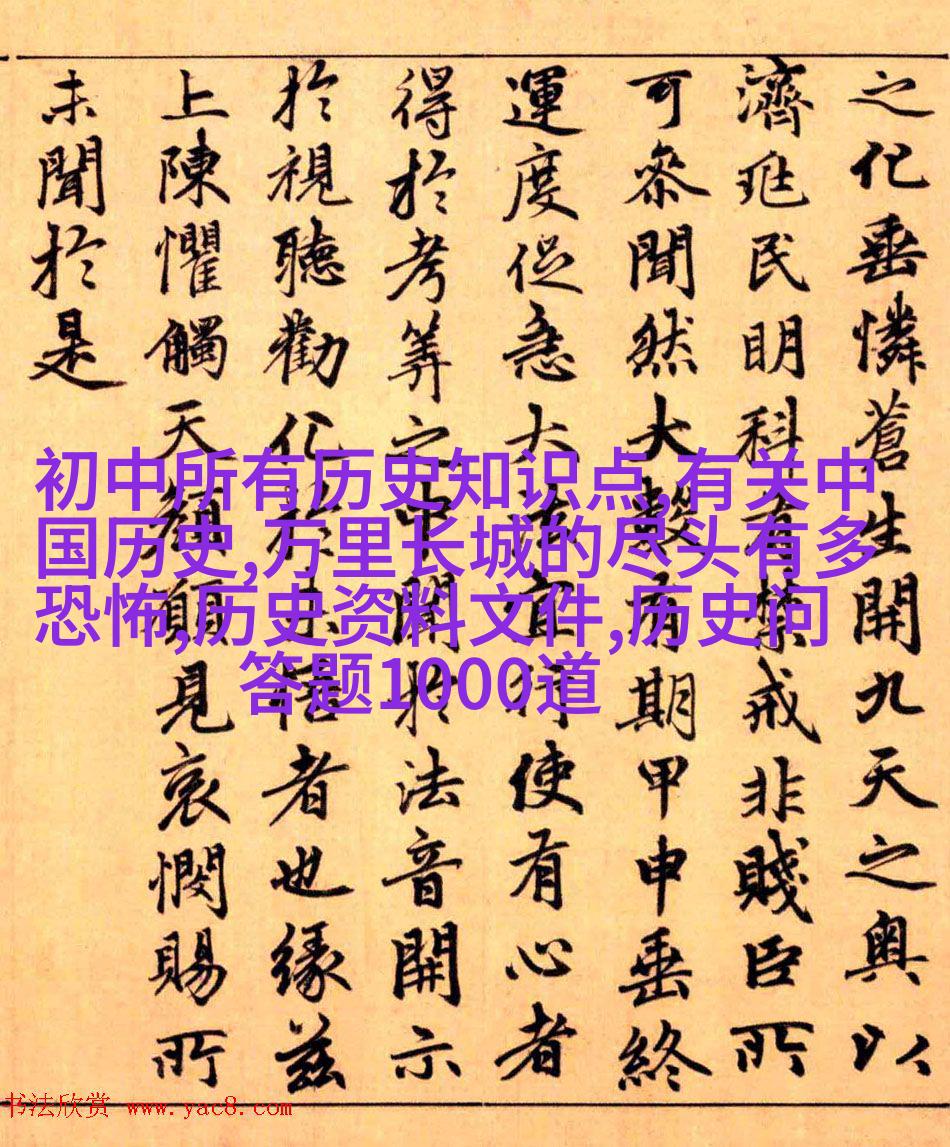 之化垂憐蒼生開九天之奥以
濟兆民明科有禁戒非賤臣所
可叅聞然大數有期甲申垂終
運度促急大法宜行使有心者
得於考筭之中聞於法音開示
於視聽勸化於未悟者也縁兹
上陳懼觸天顔願見哀憫賜所
未聞於是
初中所有历史知识点,有关中
国历史,万里长城的尽头有多
恐怖,历史资料文件,历史问
答题1000道
书法欣赏 www.yac8.com